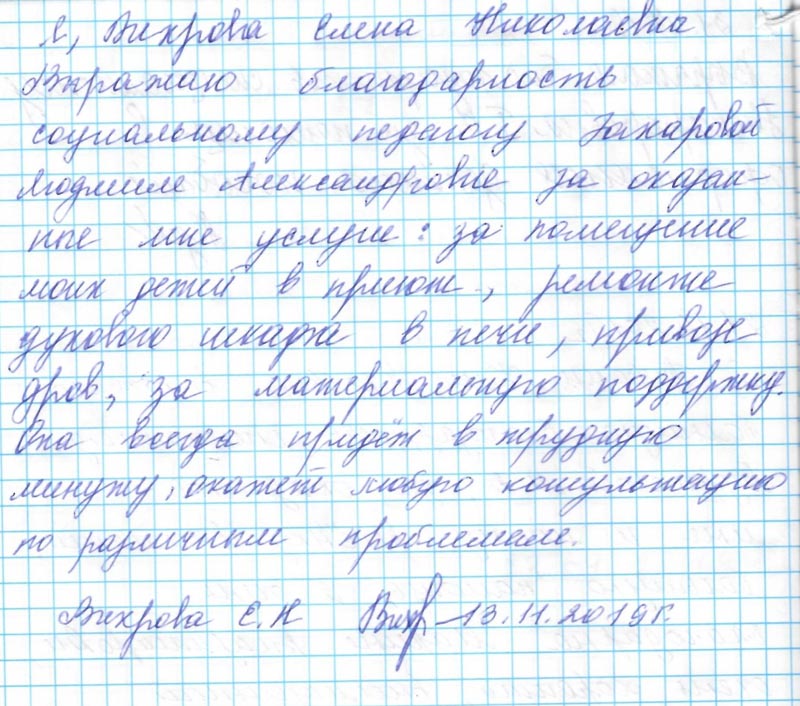 Я, Вихрова Елена Николаевна
Выражаю благодарность
социальному педагогу Захаровой
Людмиле Александровне за оказан-
ные мне услуги: за помещение
моих детей в приют, ремонте
духового шкафа в печи, привозе
дров, за материальную поддержку.
Она всегда придёт в трудную
минуту, окажет любую консультацию
по различным проблемам.
Вихрова Е.Н Вихр 13.11.2019г.